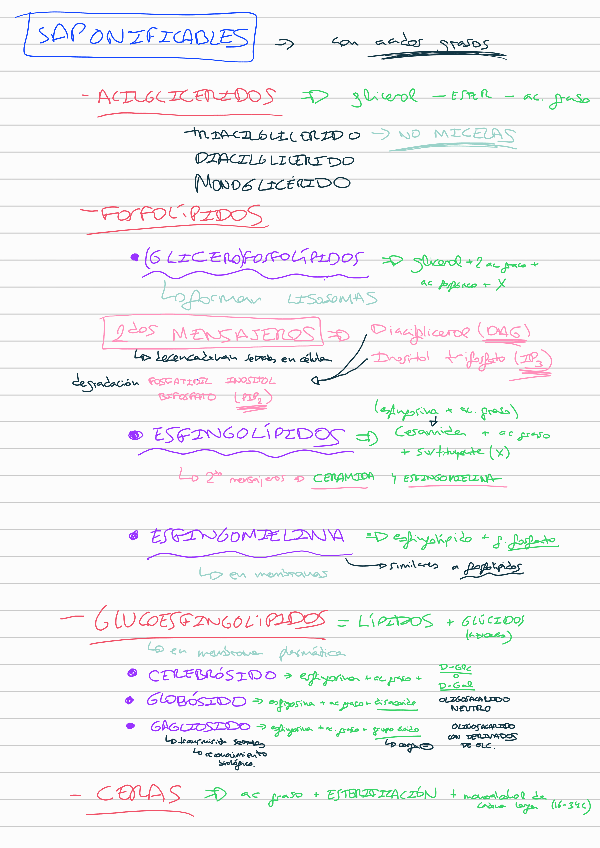 SAPONIFICABLES => con acidos grasos
- ACILGLICERIDOS => glicerol - ESTER - ac. graso
TRIACILGLICERIDO → NO MICELAS
DIACILGLICERIDO
MONOGLICÉRIDO
- FOSFOLÍPIDOS
• (GLICERO)FOSFOLÍPIDOS => glicerol + 2 ac graso +
ac fosfórico + X
↳ forman LISOSOMAS
2dos MENSAJEROS => Diacilglicerol (DAG)
↳ desencadenan señales en célula Inositol trifosfato (IP3)
degradación FOSFATIDIL INOSITOL
BIFOSFATO (PIP2)
(esfingosina + ac. graso)
• ESFINGOLÍPIDOS => Ceramidas + ac graso
+ sustituyente (X)
↳ 2dos mensajeros => CERAMIDA y ESFINGOMIELINA
• ESFINGOMIELINA => esfingolípido + g. fosfato
↳ en membranas → similares a fosfolípidos
- GLUCOESFINGOLÍPIDOS = LÍPIDOS + GLÚCIDOS
↳ en membrana plasmática
• CEREBRÓSIDO → esfingosina + ac graso + D-GLC
o
D-Gal
• GLOBÓSIDO → esfingosina + ac graso + disacarido OLIGOSACARIDO
NEUTRO
• GAGLIOSIDO → esfingosina + ac. graso + grupo acido OLIGOSACARIDO
CON DERIVADOS
DE GLC.
↳ transmisión señales ↳ carga ⊖
↳ reconocimiento
biológico.
- CERAS => ac graso + ESTERIFICACIÓN + monoalcohol de
cadena larga (16-34C)